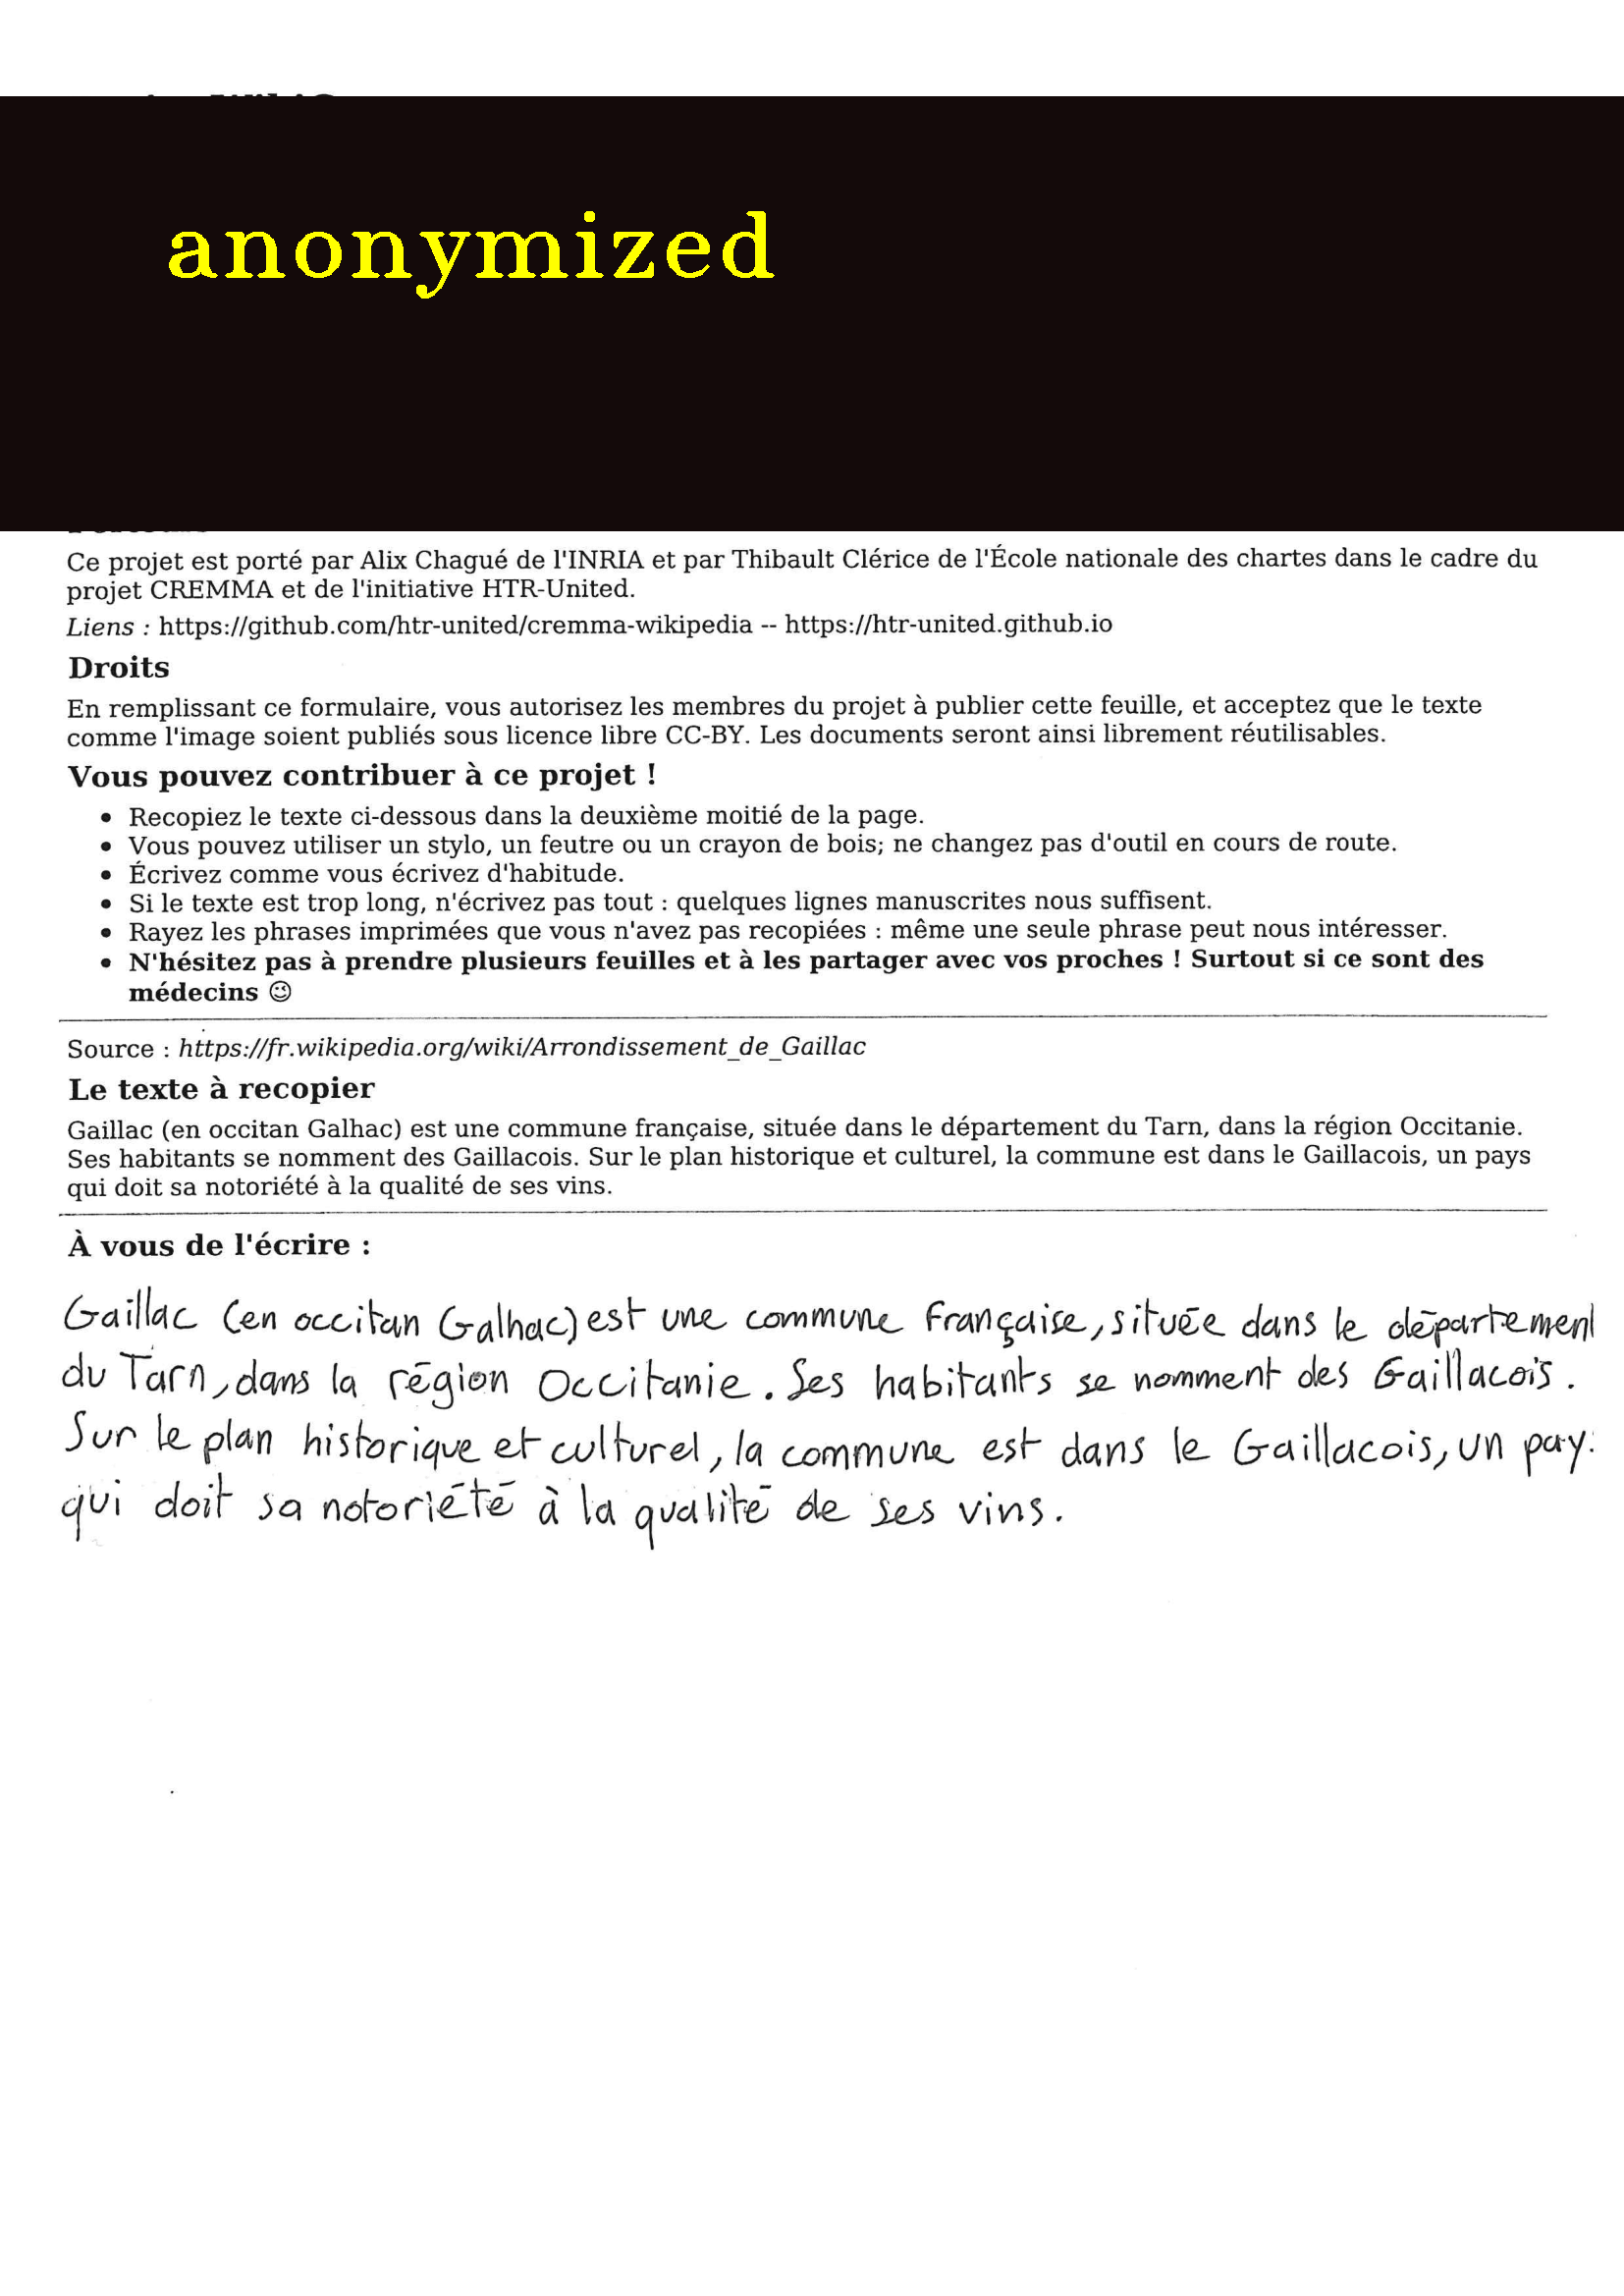 anonymized
Ce projet est porté par Alix Chagué de l'INRIA et par Thibault Clérice de l'École nationale des chartes dans le cadre du
projet CREMMA et de l'initiative HTR-United.
Liens : https://github.com/htr-united/cremma-wikipedia -- https://htr-united.github.io
Droits
En remplissant ce formulaire, vous autorisez les membres du projet à publier cette feuille, et acceptez que le texte
comme l'image soient publiés sous licence libre CC-BY. Les documents seront ainsi librement réutilisables.
Vous pouvez contribuer à ce projet !
• Recopiez le texte ci-dessous dans la deuxième moitié de la page.
• Vous pouvez utiliser un stylo, un feutre ou un crayon de bois; ne changez pas d'outil en cours de route.
• Écrivez comme vous écrivez d'habitude.
• Si le texte est trop long, n'écrivez pas tout : quelques lignes manuscrites nous suffisent.
• Rayez les phrases imprimées que vous n'avez pas recopiées : même une seule phrase peut nous intéresser.
• N'hésitez pas à prendre plusieurs feuilles et à les partager avec vos proches ! Surtout si ce sont des
médecins 😉
Source : https://fr.wikipedia.org/wiki/Arrondissement_de_Gaillac
Le texte à recopier
Gaillac (en occitan Galhac) est une commune française, située dans le département du Tarn, dans la région Occitanie.
Ses habitants se nomment des Gaillacois. Sur le plan historique et culturel, la commune est dans le Gaillacois, un pays
qui doit sa notoriété à la qualité de ses vins.
À vous de l'écrire :
Gaillac (en occitan Galhac) est une commune française, située dans le département
du Tarn, dans la région Occitanie. Ses habitants se nomment des Gaillacois.
Sur le plan historique et culturel, la commune est dans le Gaillacois, un pay
qui doit sa notoriété à la qualité de ses vins.